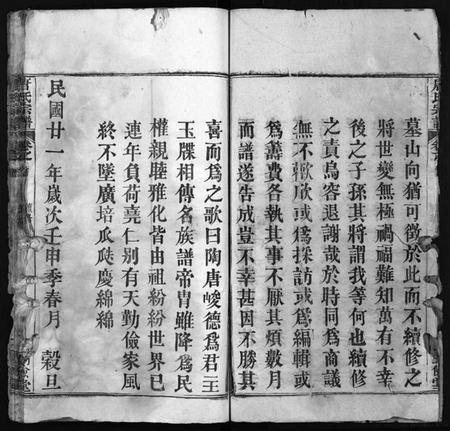 墓山向猶可徵於此而不續修之
將世變無極禍福難知萬有不幸
後之子孫其將謂我等何也續修
之責烏容退謝哉於時同爲商議
無不歡欣或爲採訪或爲編輯或
爲籌費各執其事不厭其煩數月
而譜遂告成豈不幸甚因不勝其
喜而爲之歌曰陶唐峻德爲君王
玉牒相傳名族譜帝冑雖降爲民
權親睦雅化皆由祖紛紛世界已
連年負荷嘉仁別有天勤儉家風
終不墜廣培瓜瓞慶綿綿
民國廿一年歲次壬申季春月 穀旦
唐氏宗譜